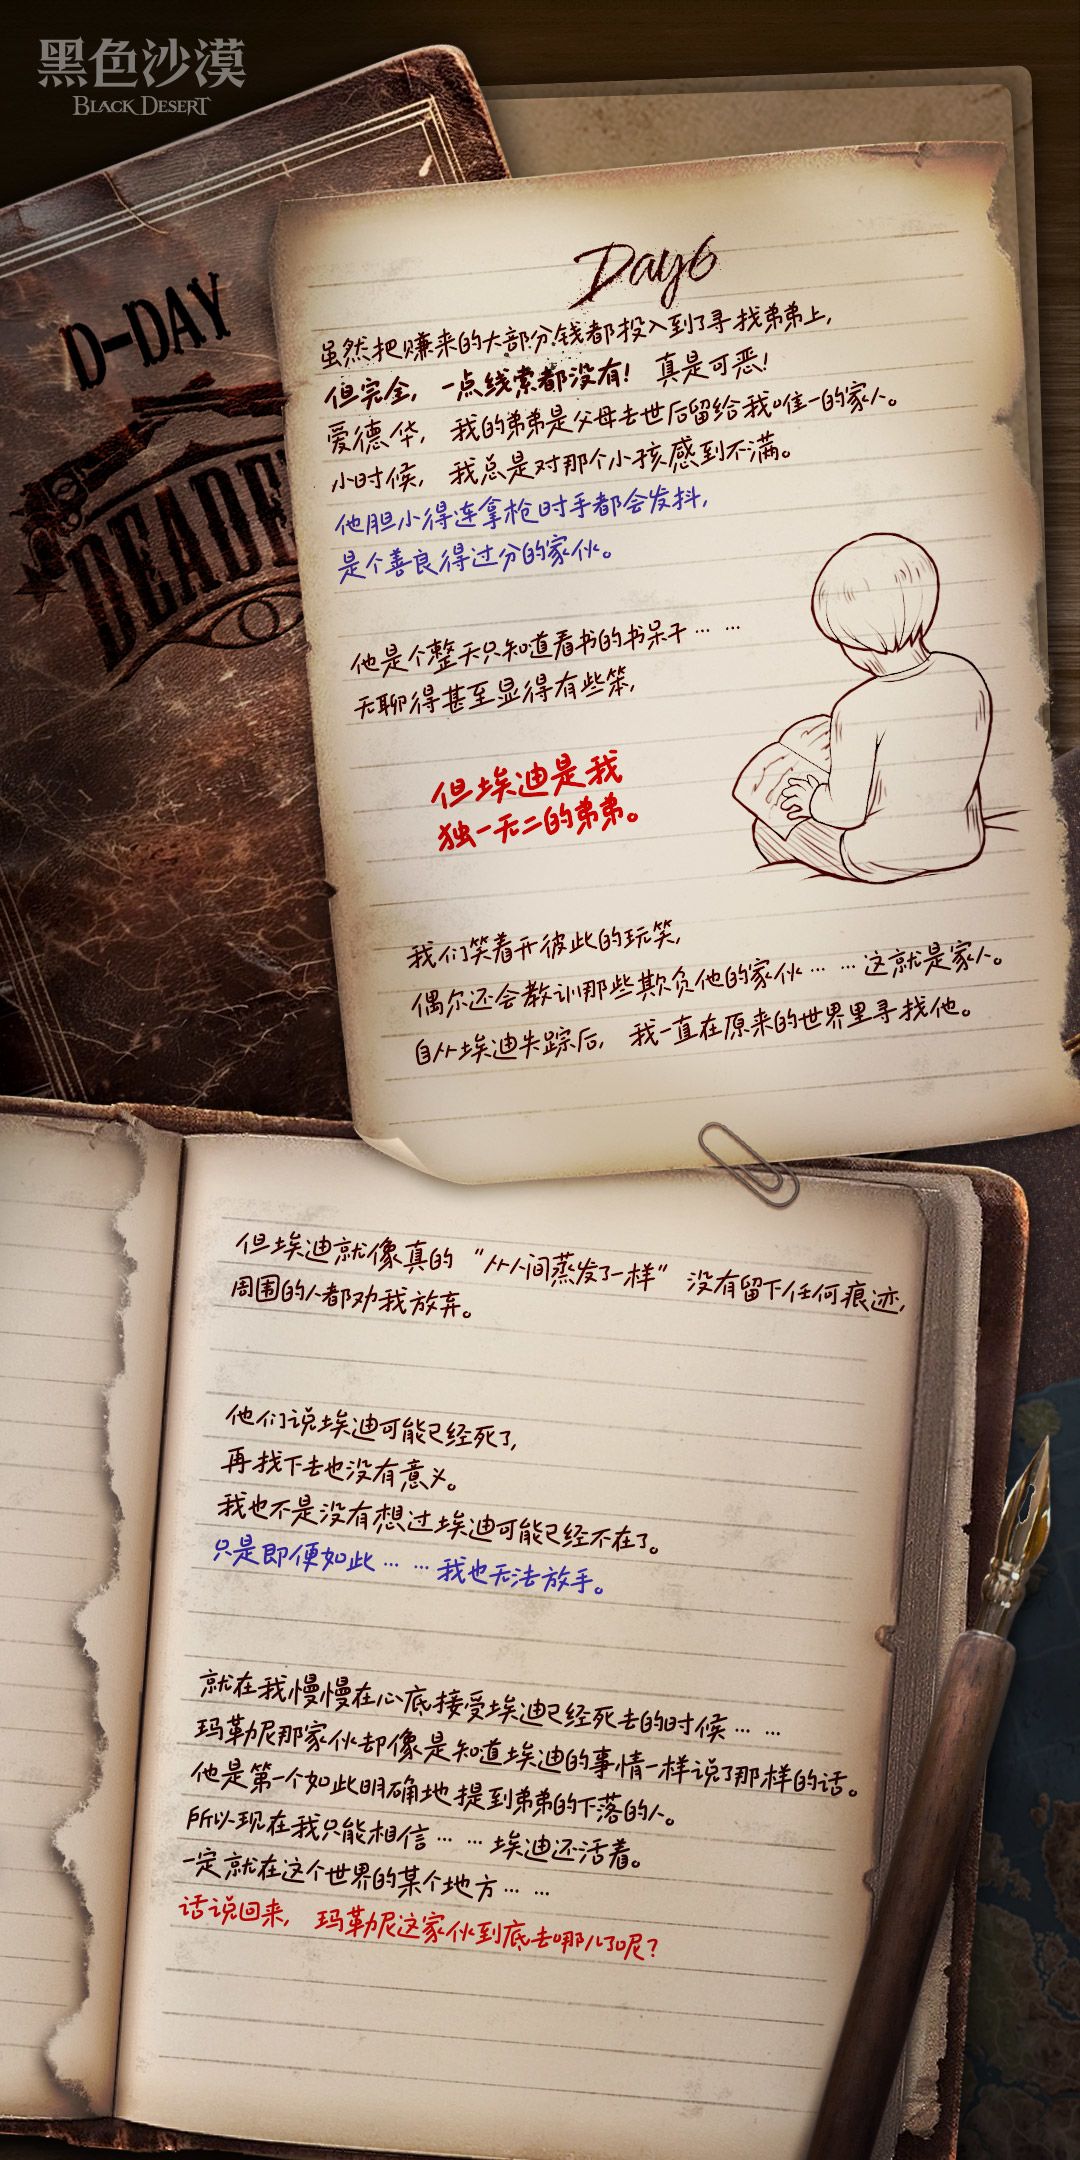 黑色沙漠
BLACK DESERT
D-DAY
DEADE
Day6
虽然把赚来的大部分钱都投入到了寻找弟弟上，
但完全，一点线索都没有！ 真是可恶！
爱德华， 我的弟弟是父母去世后留给我唯一的家人。
小时候， 我总是对那个小孩感到不满。
他胆小得连拿枪时手都会发抖，
是个善良得过分的家伙。
他是个整天只知道看书的书呆子… …
无聊得甚至显得有些笨，
但埃迪是我
独一无二的弟弟。
我们笑着开彼此的玩笑，
偶尔还会教训那些欺负他的家伙… …这就是家人。
自从埃迪失踪后， 我一直在原来的世界里寻找他。
但埃迪就像真的“从人间蒸发了一样”没有留下任何痕迹，
周围的人都劝我放弃。
他们说埃迪可能已经死了，
再找下去也没有意义。
我也不是没有想过埃迪可能已经不在了。
只是即便如此… …我也无法放手。
就在我慢慢在心底接受埃迪已经死去的时候… …
玛勒尼那家伙却像是知道埃迪的事情一样说了那样的话。
他是第一个如此明确地提到弟弟的下落的人。
所以现在我只能相信… …埃迪还活着。
一定就在这个世界的某个地方… …
话说回来， 玛勒尼这家伙到底去哪儿了呢？